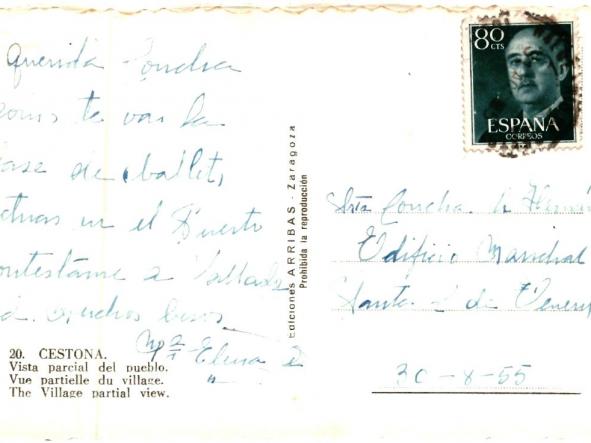 Querida Concha
te van la
de ballet,
en el Puerto
contestame a Vallado
d. muchos besos
Mª Elena
20. CESTONA.
Vista parcial del pueblo.
Vue partielle du village.
The Village partial view.
Ediciones ARRIBAS - Zaragoza
Prohibida la reproducción
80
CTS
ESPAÑA
CORREOS
Srta Concha
Edificio
Santa de
30-8-55